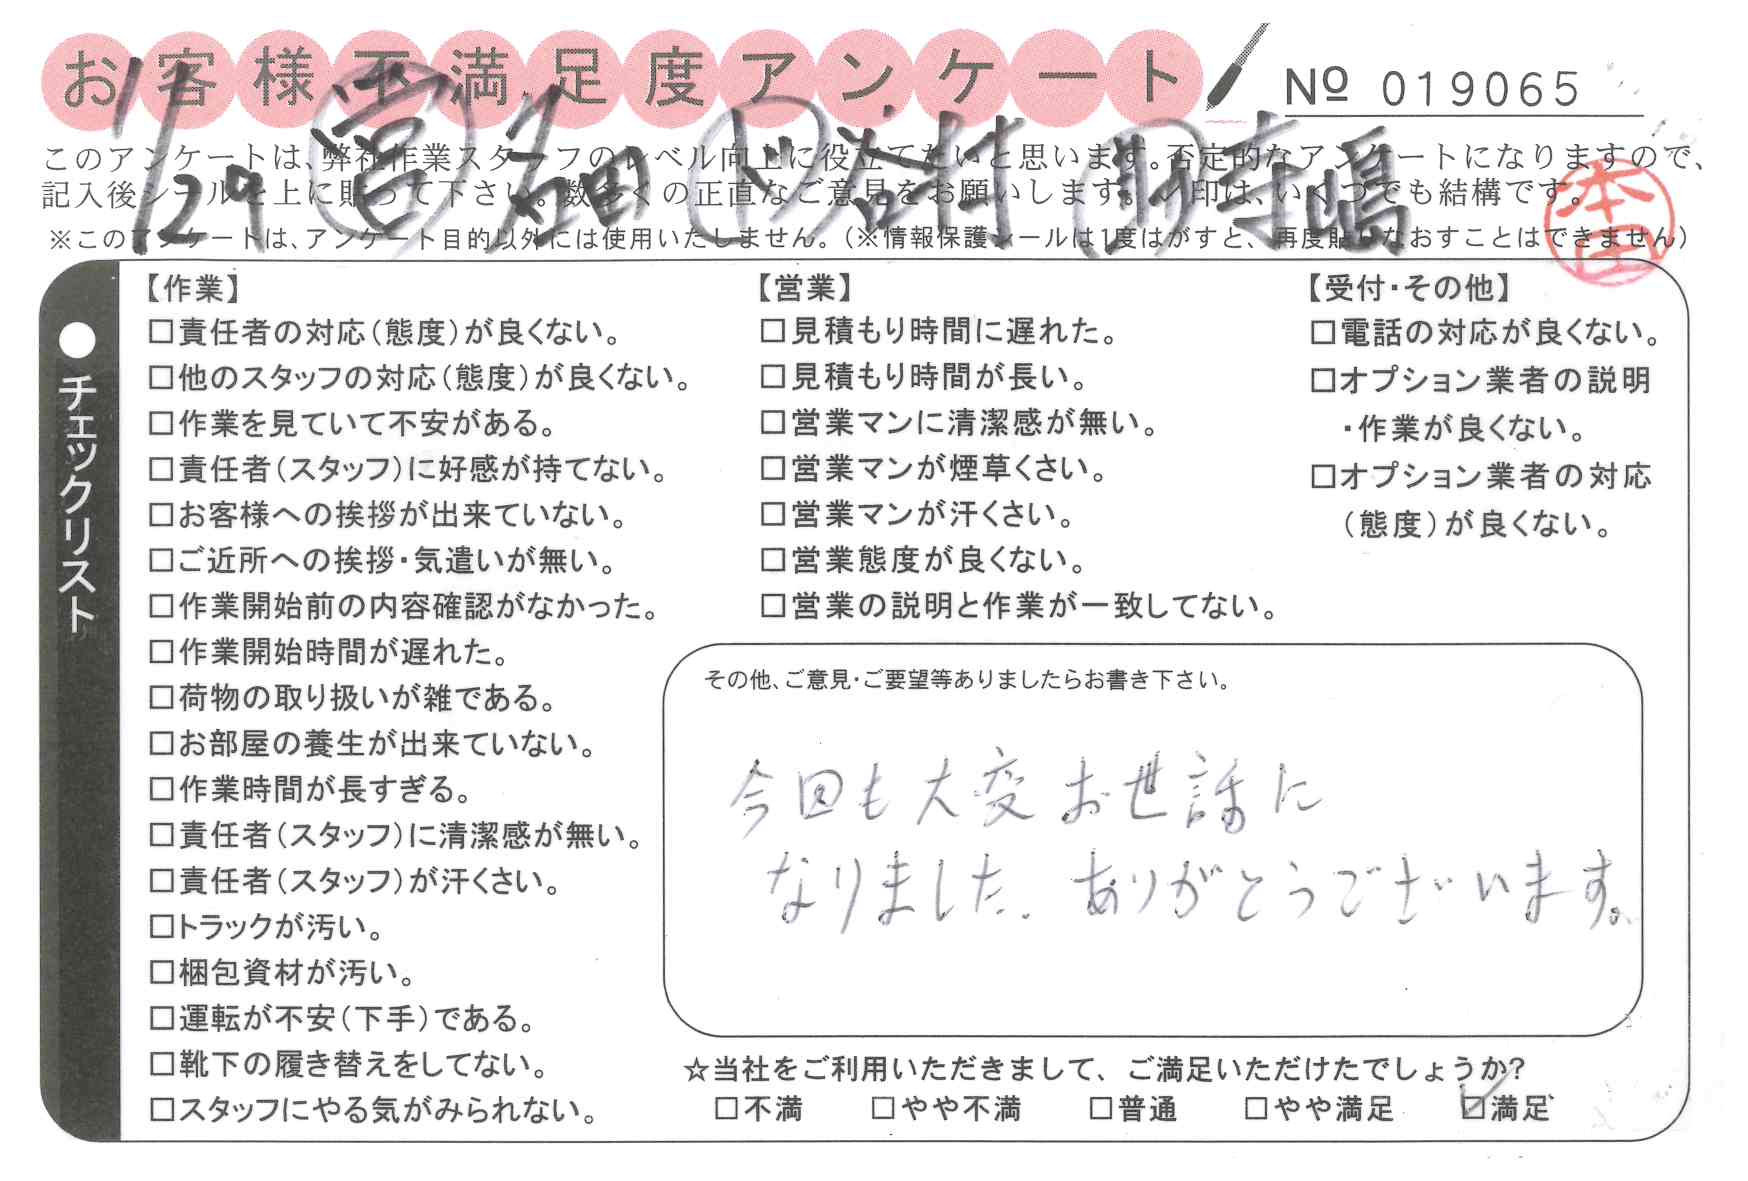 お客様不満足度アンケート
№ 019065
1/29 営 名田 ド 谷村 助 寺嶋
このアンケートは、弊社作業スタッフのレベル向上に役立てたいと思います。否定的なアンケートになりますので、
記入後シールを上に貼って下さい。数多くの正直なご意見をお願いします。レ印は、いくつでも結構です。
※このアンケートは、アンケート目的以外には使用いたしません。(※情報保護シールは1度はがすと、再度貼りなおすことはできません)
本田
●チェックリスト
【作業】
□責任者の対応(態度)が良くない。
□他のスタッフの対応(態度)が良くない。
□作業を見ていて不安がある。
□責任者(スタッフ)に好感が持てない。
□お客様への挨拶が出来ていない。
□ご近所への挨拶・気遣いが無い。
□作業開始前の内容確認がなかった。
□作業開始時間が遅れた。
□荷物の取り扱いが雑である。
□お部屋の養生が出来ていない。
□作業時間が長すぎる。
□責任者(スタッフ)に清潔感が無い。
□責任者(スタッフ)が汗くさい。
□トラックが汚い。
□梱包資材が汚い。
□運転が不安(下手)である。
□靴下の履き替えをしてない。
□スタッフにやる気がみられない。
【営業】
□見積もり時間に遅れた。
□見積もり時間が長い。
□営業マンに清潔感が無い。
□営業マンが煙草くさい。
□営業マンが汗くさい。
□営業態度が良くない。
□営業の説明と作業が一致してない。
【受付・その他】
□電話の対応が良くない。
□オプション業者の説明
・作業が良くない。
□オプション業者の対応
(態度)が良くない。
その他、ご意見・ご要望等ありましたらお書き下さい。
今回も大変お世話に
なりました。ありがとうございます。
☆当社をご利用いただきまして、ご満足いただけたでしょうか?
□不満 □やや不満 □普通 □やや満足 ☑満足